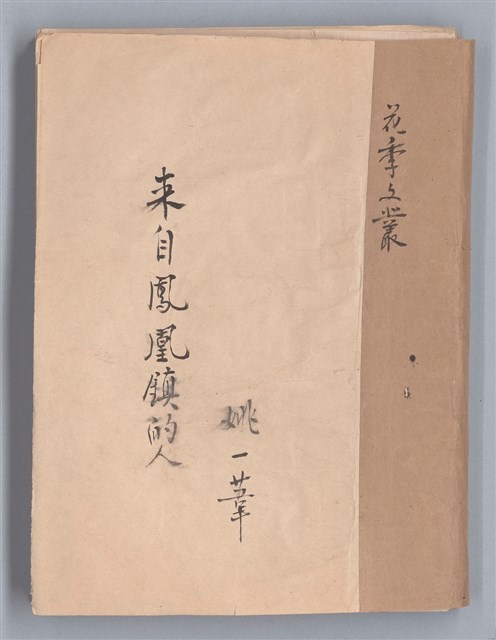 花季文叢
来自鳳凰鎮的人
姚一葦